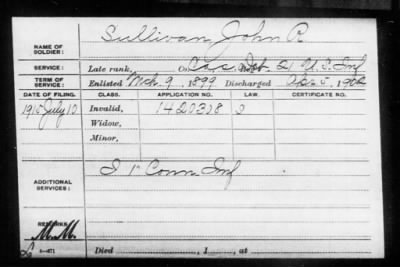 NAME OF SOLDIER: Sullivan John R
SERVICE: Late rank, Co Cas. Det. 2, U.S. Inf
TERM OF SERVICE: Enlisted Mch. 9, 1899 Discharged Apr. 5, 1902
DATE OF FILING. CLASS. APPLICATION NO. LAW. CERTIFICATE NO.
1915 July 13 Invalid, 1420308
Widow,
Minor,
ADDITIONAL SERVICES: 1 Conn Inf
REMARKS: M.M.
Died , 1 , at